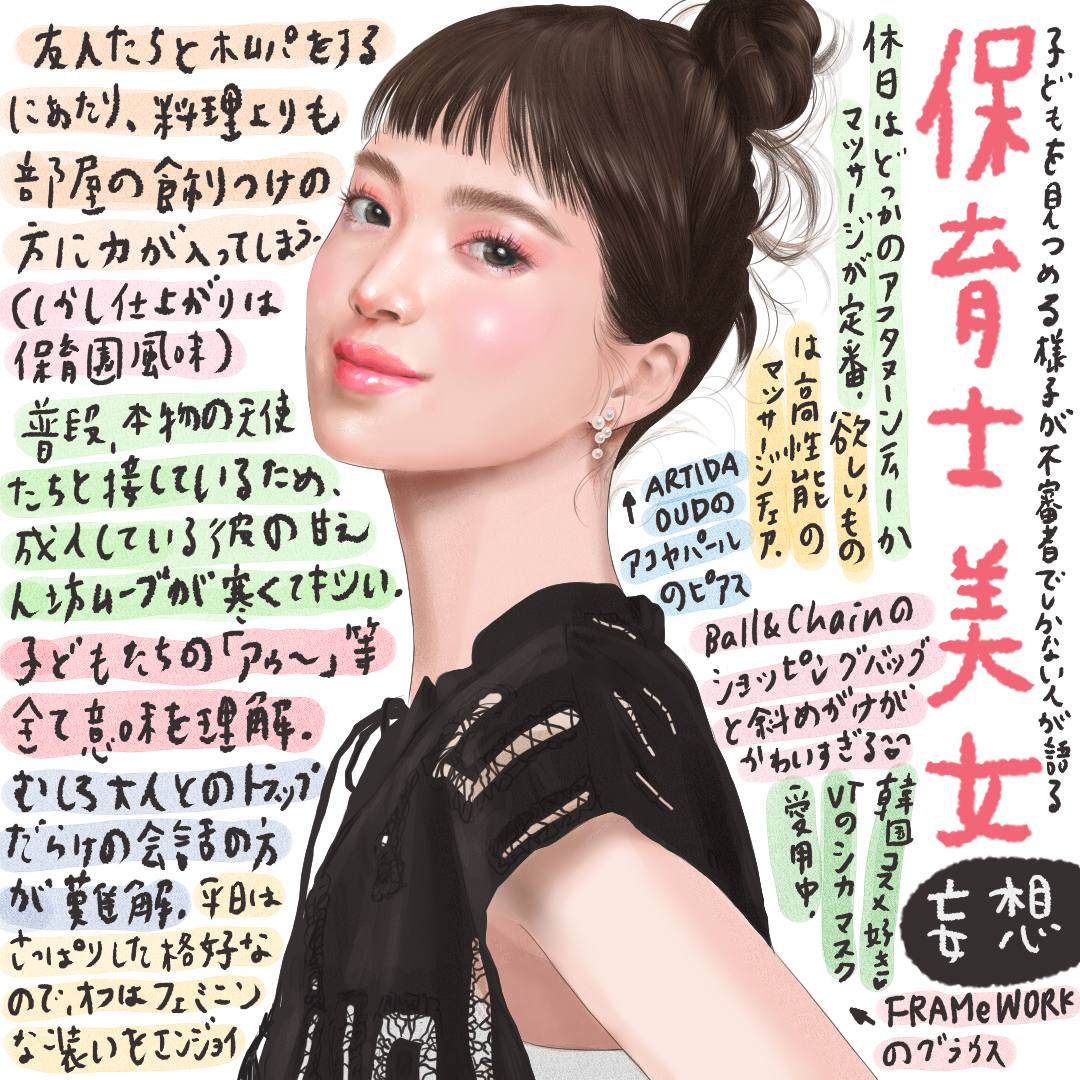 子どもを見つめる様子が不審者でしかない人が語る
保育士美女
妄想
休日はどっかのアフタヌーンティーか
マッサージが定番。欲しいもの
は高性能の
マッサージチェア。
友人たちとホムパをする
にあたり、料理よりも
部屋の飾りつけの
方に力が入ってしまう。
(しかし仕上がりは
保育園風味)
普段、本物の天使
たちと接しているため、
成人している彼の甘え
ん坊ムーブが寒くてキツい。
子どもたちの「アゥ〜」等
全て意味を理解。
むしろ大人とのトラップ
だらけの会話の方
が難解。平日は
さっぱりした格好な
ので、オフはフェミニン
な装いをエンジョイ
↑ARTIDA
OUDの
アコヤパール
のピアス
Ball&Chainの
ショッピングバッグ
と斜めがけが
かわいすぎる
韓国コスメ好き
VTのシカマスク
愛用中。
FRAMeWORK
のブラウス